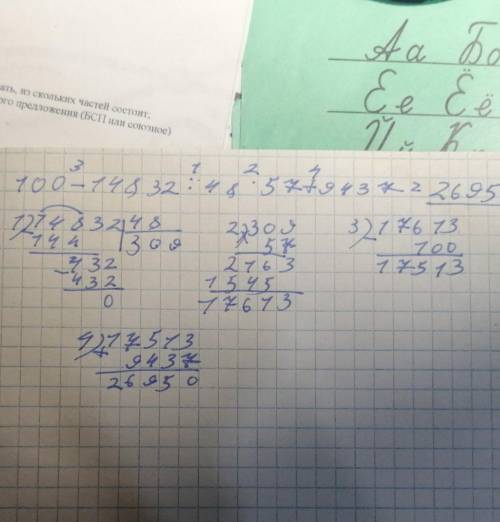 ать, из скольких частей состоит;
ого предложения (БСП или союзное)
Аа Бб
Ее Ёё
3 1 2 4
100-14832:48·57+9437=2695
1) 14832 48
144 309
432
432
0
2) 309
x 57
2163
1545
17613
3) 17613
100
17513
4) 17513
+ 9437
26950